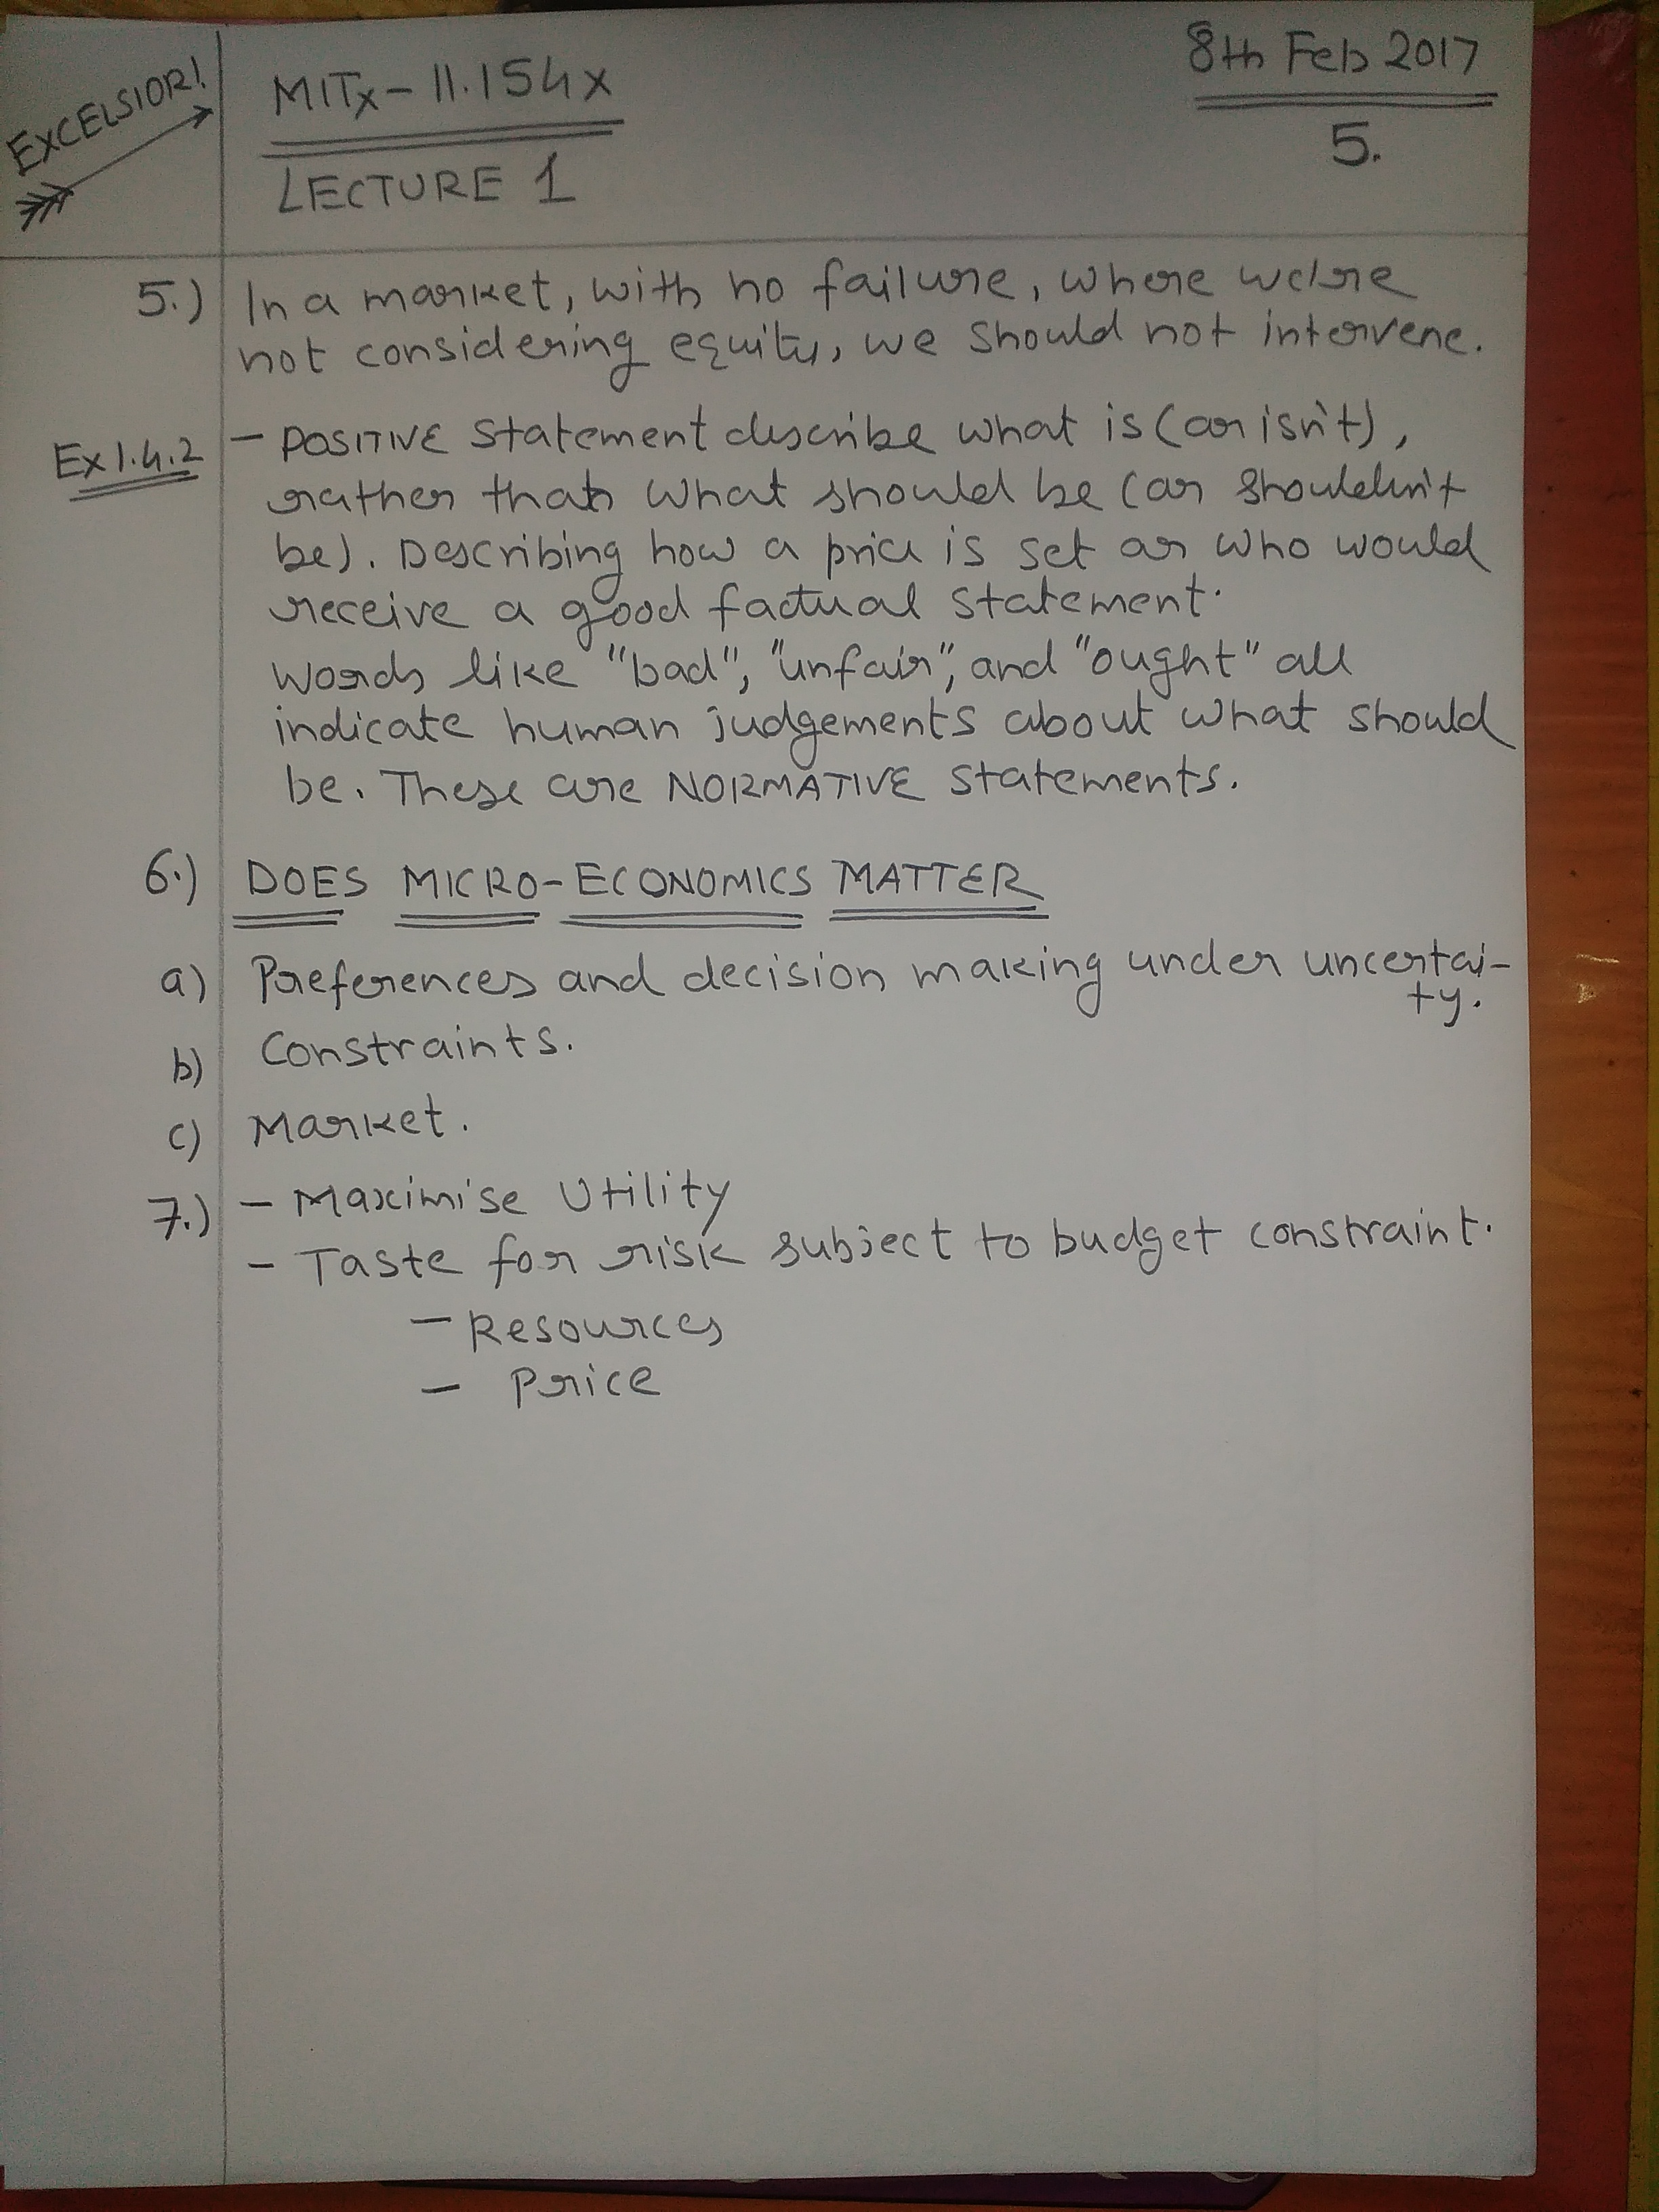 EXCELSIOR!
MITx - 11.154x
8th Feb 2017
LECTURE 1
5.
5.) In a market, with no failure, where we're
not considering equity, we should not intervene.
Ex 1.4.2 - POSITIVE statement describe what is (or isn't),
rather than what should be (or shouldn't
be). Describing how a price is set or who would
receive a good factual statement.
Words like "bad", "unfair", and "ought" all
indicate human judgements about what should
be. These are NORMATIVE statements.
6.) DOES MICRO-ECONOMICS MATTER
a) Preferences and decision making under uncertai-
ty.
b) Constraints.
c) Market.
7.) - Maximise Utility
- Taste for risk subject to budget constraint.
- Resources
- Price